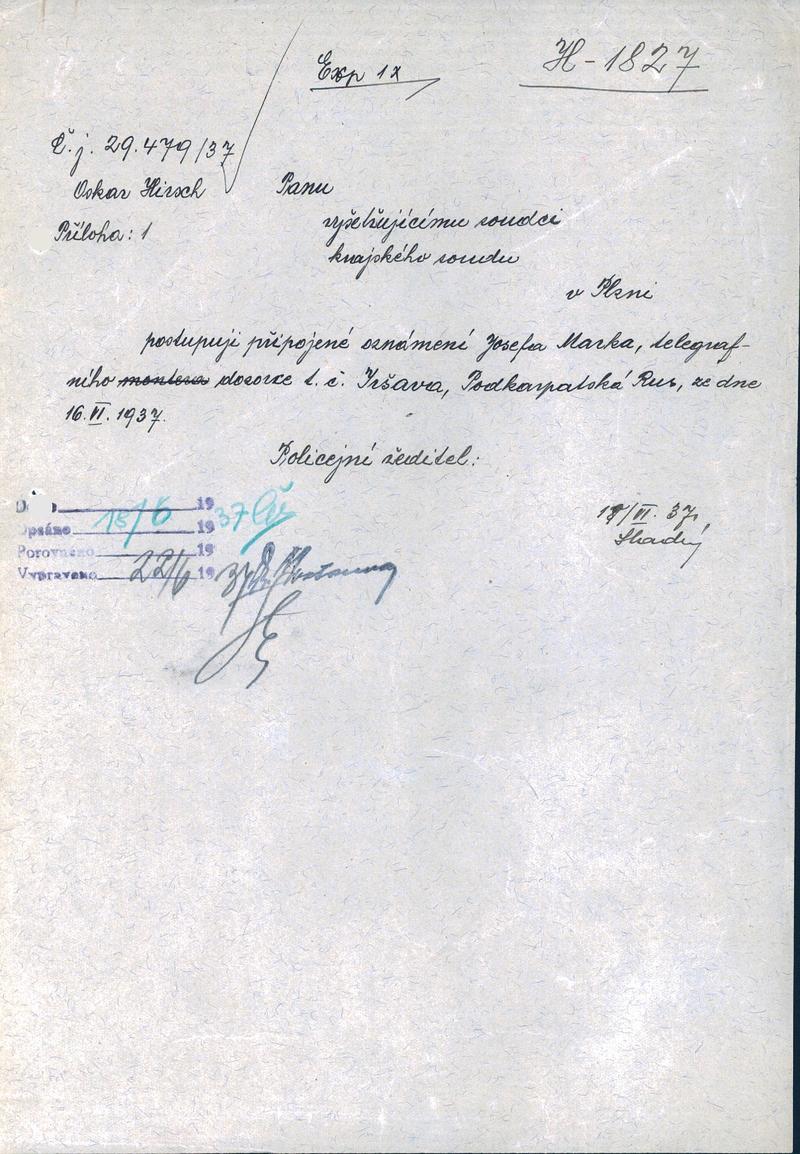 Exp 1x
H-1827
Č.j. 29.479/37
Oskar Hirsch
Příloha: 1
Panu
vyšetřujícímu soudci
krajského soudu
v Plzni
postupuji připojené oznámení Josefa Marka, telegraf-
ního montera dozorce t. č. Iršava, Podkarpatská Rus, ze dne
16. VI. 1937.
Policejní ředitel:
18/VI. 37.
19
Opsáno 18/6 1937
Porovnáno 19
Vypraveno 22/6 1937